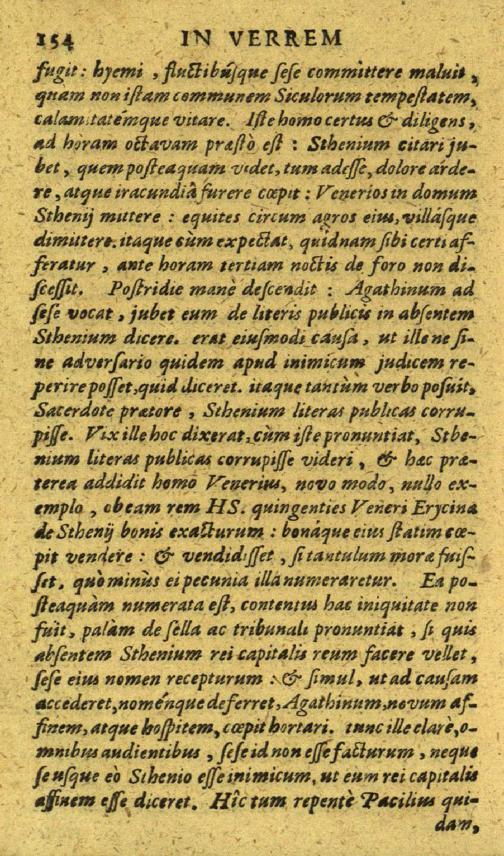 154 IN VERREM
fugit: hyemi, fluctibúsque sese committere maluit,
quam non istam communem Siculorum tempestatem,
calamitatémque vitare. Iste homo certus & diligens,
ad horam octavam præstò est: Sthenium citari ju-
bet, quem posteaquam videt, tum adesse, dolore arde-
re, atque iracundiâ furere cœpit: Venerios in domum
Sthenij mittere: equites circum agros eius, villásque
dimittere. itaque cùm expectat, quidnam sibi certi af-
feratur, ante horam tertiam noctis de foro non di-
scessit. Postridie manè descendit: Agathinum ad
sese vocat, jubet eum de literis publicis in absentem
Sthenium dicere. erat eiusmodi causa, ut ille ne si-
ne adversario quidem apud inimicum judicem re-
perire posset, quid diceret. itaque tantùm verbo posuit,
Sacerdote prætore, Sthenium literas publicas corru-
pisse. Vix ille hoc dixerat, cùm iste pronuntiat, Sthe-
nium literas publicas corrupisse videri, & hæc præ-
terea addidit homo Venerius, novo modo, nullo ex-
emplo, ob eam rem HS. quingenties Veneri Erycinæ
de Sthenij bonis exacturum: bonáque eius statim cœ-
pit vendere: & vendidisset, si tantulum moræ fuis-
set, quo minùs ei pecunia illa numeraretur. Ea po-
steaquàm numerata est, contentus hac iniquitate non
fuit, palàm de sella ac tribunali pronuntiat, si quis
absentem Sthenium rei capitalis reum facere vellet,
sese eius nomen recepturum: & simul, ut ad causam
accederet, noménque deferret, Agathinum, novum af-
finem, atque hospitem, cœpit hortari. tunc ille clarè, o-
mnibus audientibus, sese id non esse facturum, neque
se usque eò Sthenio esse inimicum, ut eum rei capitalis
affinem esse diceret. Hîc tum repentè Pacilius qui-
dam,